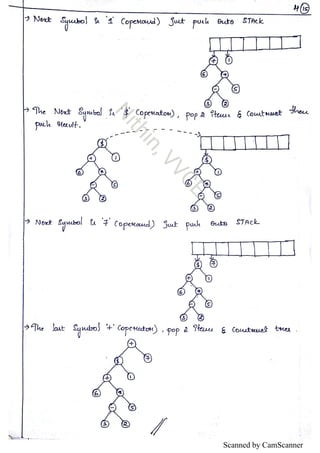 4 15
→ Next Symbol is '1' (operand) Just push onto STACK
+ 1
6 *
- 5
3 2
→ The Next Symbol is '$' (operator), pop 2 items & construct then
push result.
$ $
+ 1 + 1
6 * 6 *
- 5 - 5
3 2 3 2
→ Next Symbol is '7' (operand) Just push onto STACK
$ 7
+ 1
6 *
- 5
3 2
→ The last Symbol '+' (operator), pop 2 items & construct tree.
+
$ 7
+ 1
6 *
- 5
3 2
Nithin, VVCE
Scanned by CamScanner